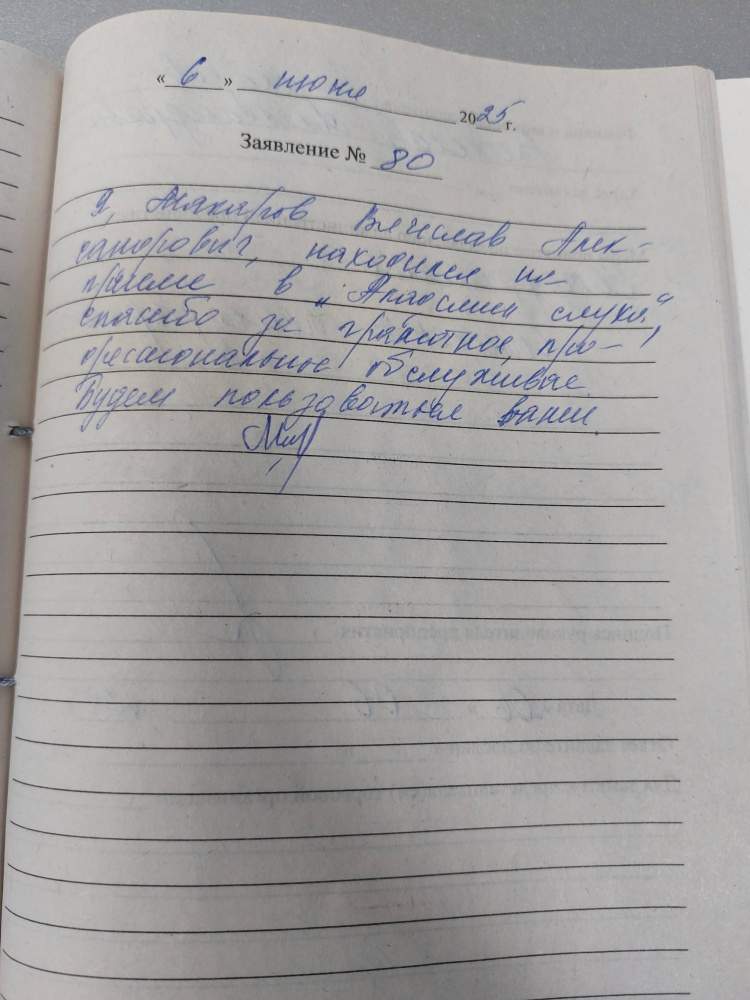 « 6 » июня 2025 г.
Заявление № 80
Я, Макаров Вячеслав Алек-
сандрович, находился на
приеме в "Академии слуха"
спасибо за грамотное, про-
фессиональное обслуживае
Будем пользоваться вами